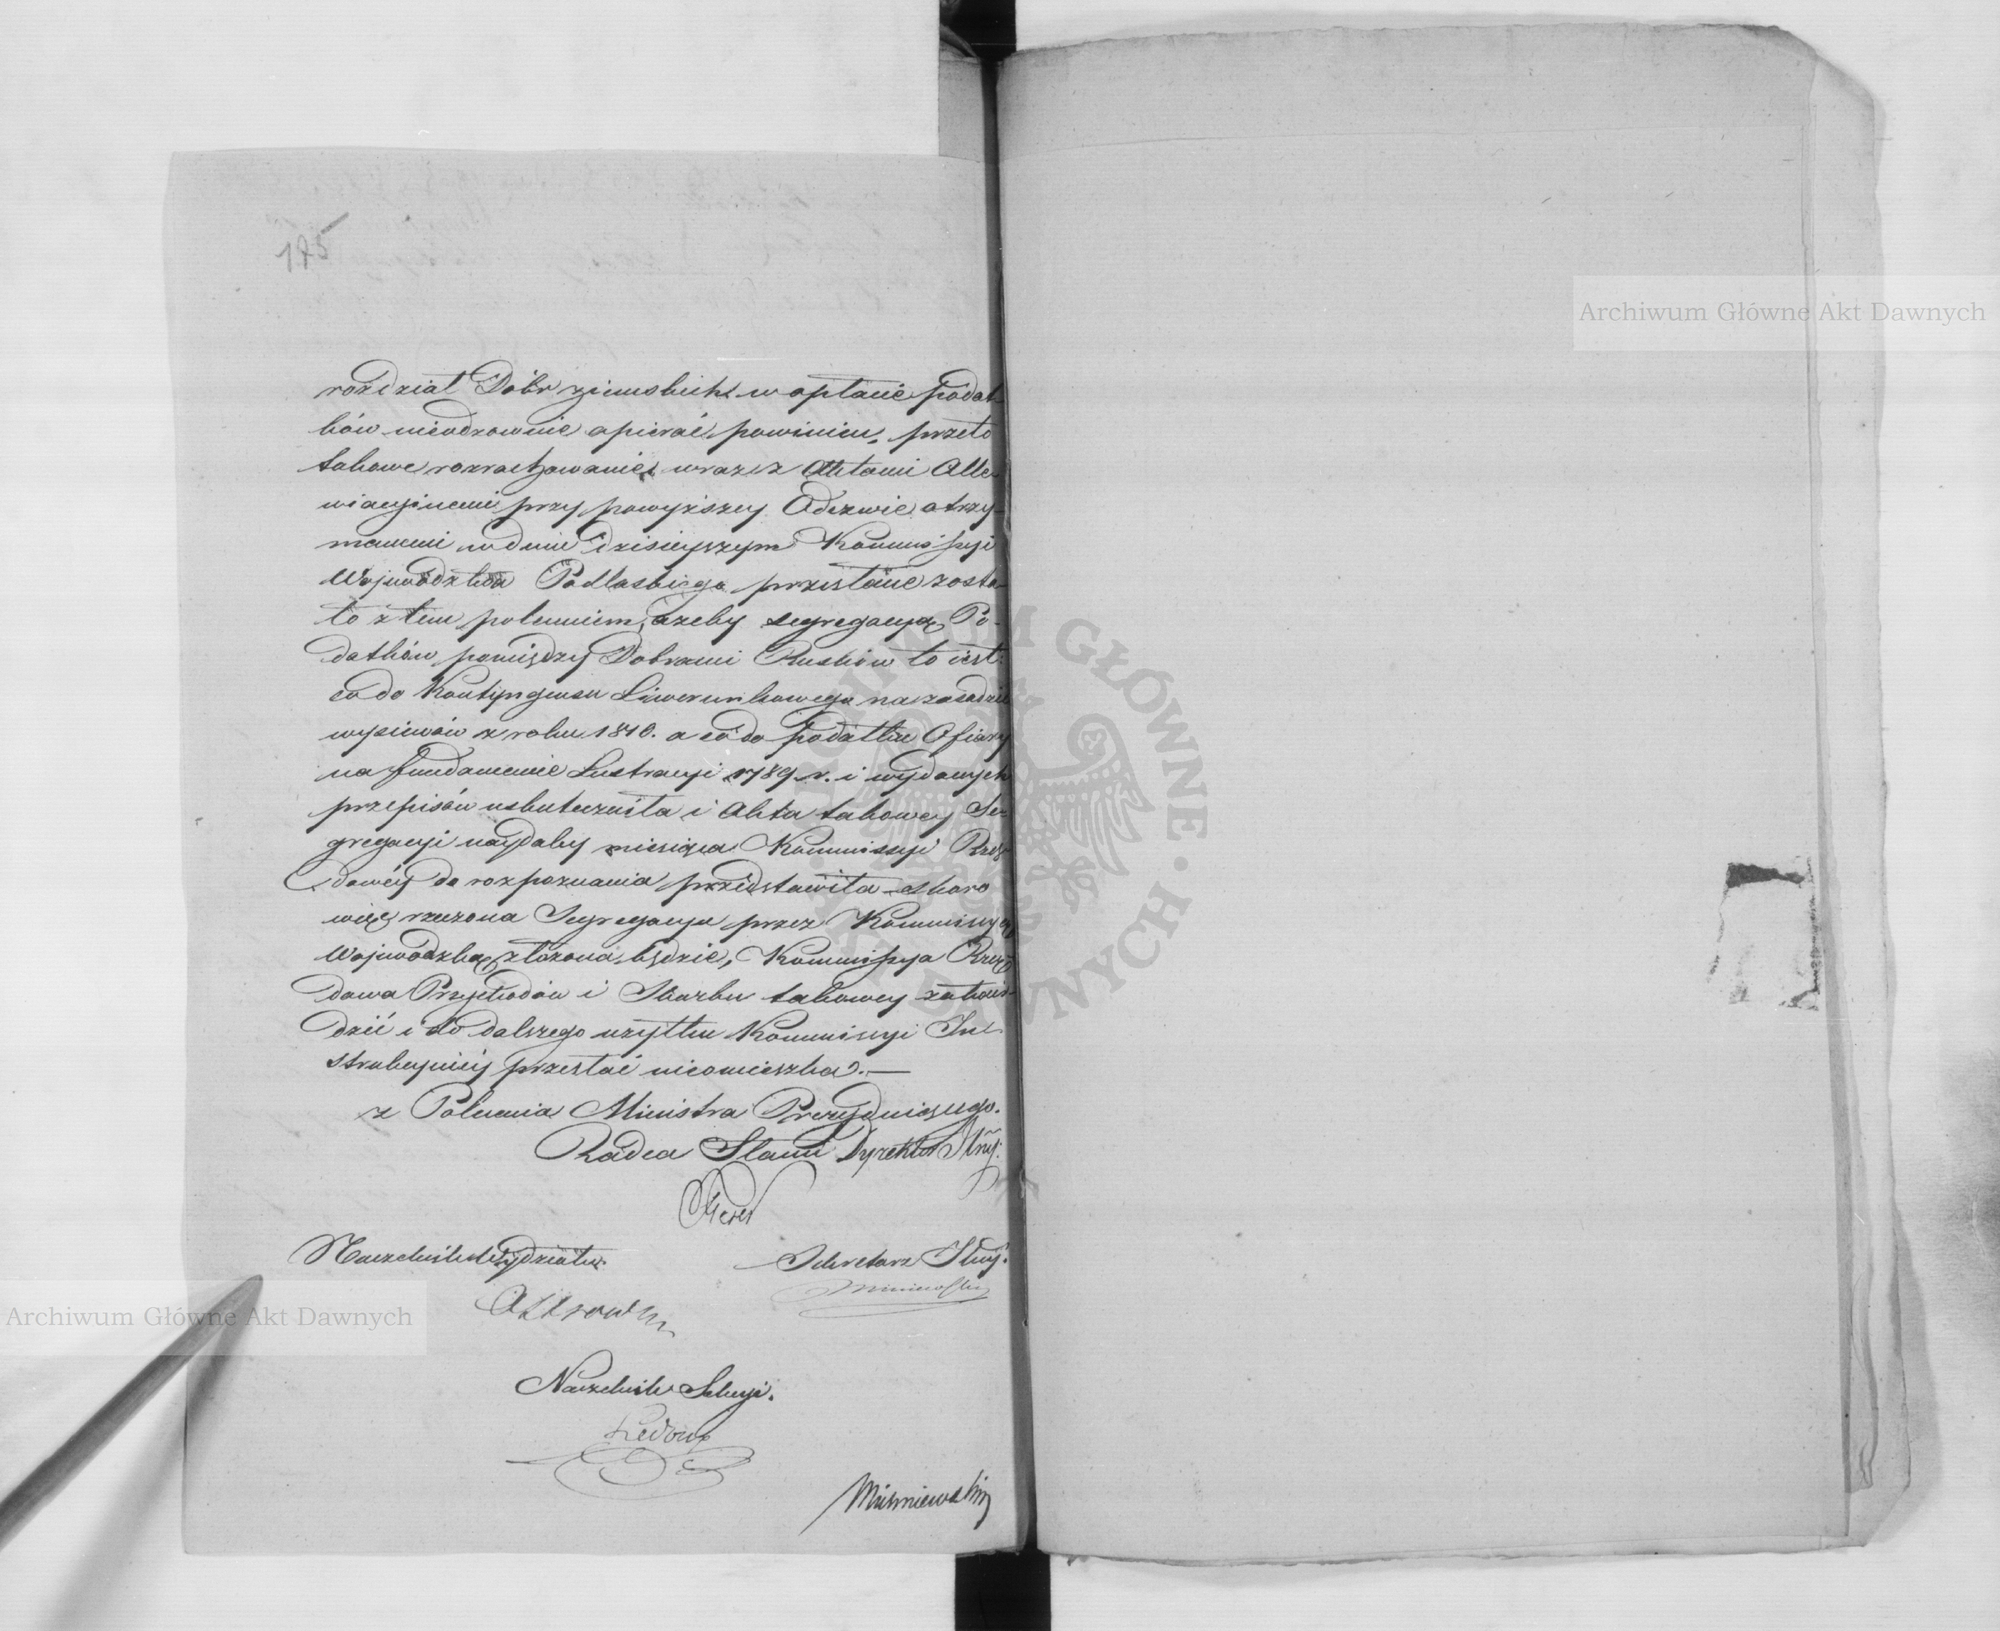 175
rozdział Dóbr ziemskich w opłacie podat-
ków nieodzownie opierać powinien, przeto
takowe rozrachowanie wraz z Aktami Alle-
wiacyjnemi przy powyższey Odezwie otrzy-
manemi w dniu dzisieyszym Kommissyi
Województwa Podlaskiego przesłane zosta-
ło z tem poleceniem, ażeby segregacyą Po-
datków pomiędzy Dobrami Ruskow to iest:
co do Kontyngensu Liwerunkowego na zasadzie
wysiewów z roku 1810. a co do Podatku Ofiary
na fundamencie Lustracyi 1789 r. i wydanych
przepisów uskuteczniła i Akta takowey Se-
gregacyi naydaley miesiąca Kommissyi Rzą-
dowéy do rozpoznania przedstawiła – skoro
więc rzeczona Segregacya przez Kommissyą
Wojewódzką złożona będzie, Kommissya Rzą-
dowa Przychodów i Skarbu takowey zatwier-
dzić i do dalszego użytku Kommissyi In-
strukcyiney przesłać nieomieszka. —
z Polecenia Ministra Prezyduiącego.
Radca Stanu Dyrektor Jlny:
Naczelnik Wydziału.
Sekretarz Jlny:
Naczelnik Sekcyi.
Archiwum Główne Akt Dawnych
Archiwum Główne Akt Dawnych